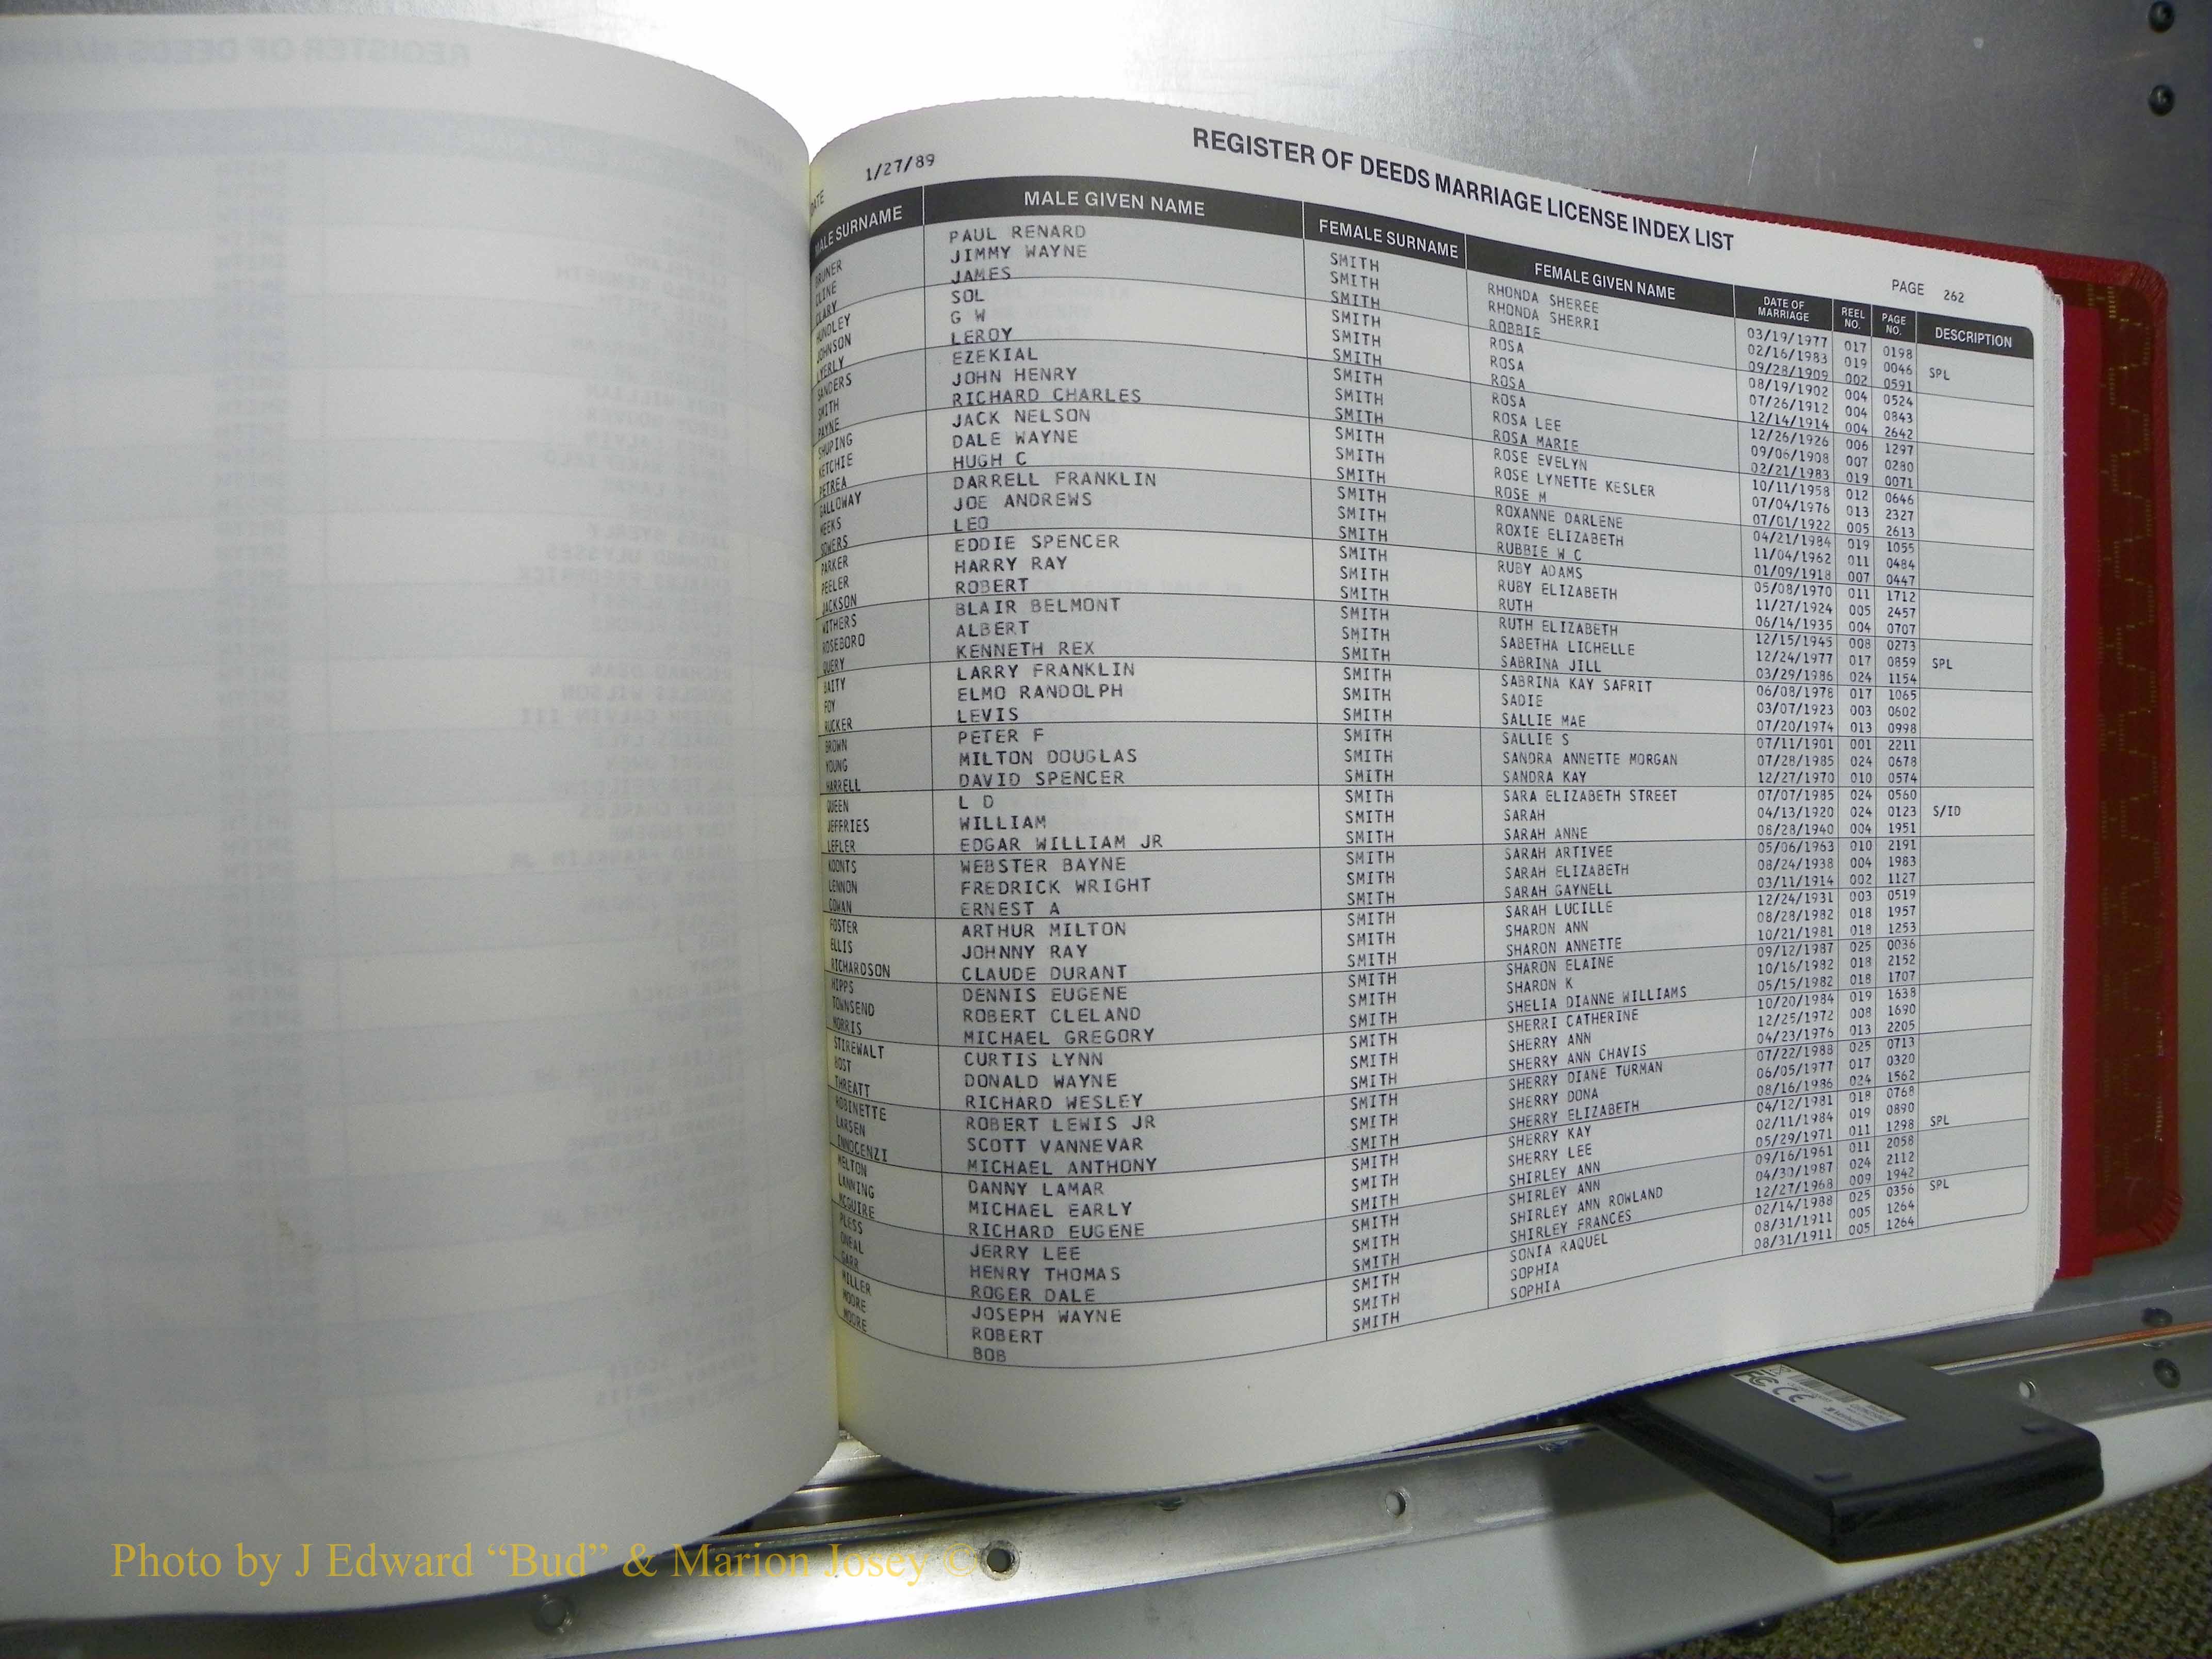 REGISTER OF DEEDS MARRIAGE LICENSE INDEX LIST
DATE 1/27/89 PAGE 262
MALE SURNAME MALE GIVEN NAME FEMALE SURNAME FEMALE GIVEN NAME DATE OF MARRIAGE REEL NO. PAGE NO. DESCRIPTION
BRUNER PAUL RENARD SMITH RHONDA SHEREE 03/19/1977 017 0198
CLINE JIMMY WAYNE SMITH RHONDA SHERRI 02/16/1983 019 0046 SPL
CLARY JAMES SMITH ROBBIE 09/28/1909 002 0591
HUNDLEY SOL SMITH ROSA 08/19/1902 004 0524
JOHNSON G W SMITH ROSA 07/26/1912 004 0843
LYERLY LEROY SMITH ROSA 12/14/1914 004 2642
SANDERS EZEKIAL SMITH ROSA 12/26/1926 006 1297
SMITH JOHN HENRY SMITH ROSA LEE 09/06/1908 007 0280
PAYNE RICHARD CHARLES SMITH ROSA MARIE 02/21/1983 019 0071
SHUPING JACK NELSON SMITH ROSE EVELYN 10/11/1958 012 0646
KETCHIE DALE WAYNE SMITH ROSE LYNETTE KESLER 07/04/1976 013 2327
PETREA HUGH C SMITH ROSE M 07/01/1922 005 2613
GALLOWAY DARRELL FRANKLIN SMITH ROXANNE DARLENE 04/21/1984 019 1055
JOE ANDREWS SMITH ROXIE ELIZABETH 11/04/1962 011 0484
SOWERS LEO SMITH RUBBIE W C 01/09/1918 007 0447
PARKER EDDIE SPENCER SMITH RUBY ADAMS 05/08/1970 011 1712
PEELER HARRY RAY SMITH RUBY ELIZABETH 11/27/1924 005 2457
JACKSON ROBERT SMITH RUTH 06/14/1935 004 0707
WITHERS BLAIR BELMONT SMITH RUTH ELIZABETH 12/15/1945 008 0273
ROSEBORO ALBERT SMITH SABETHA LICHELLE 12/24/1977 017 0859 SPL
QUERY KENNETH REX SMITH SABRINA JILL 03/29/1986 024 1154
BAITY LARRY FRANKLIN SMITH SABRINA KAY SAFRIT 06/08/1978 017 1065
FOY ELMO RANDOLPH SMITH SADIE 03/07/1923 003 0602
RUCKER LEVIS SMITH SALLIE MAE 07/20/1974 013 0998
BROWN PETER F SMITH SALLIE S 07/11/1901 001 2211
YOUNG MILTON DOUGLAS SMITH SANDRA ANNETTE MORGAN 07/28/1985 024 0678
HARRELL DAVID SPENCER SMITH SANDRA KAY 12/27/1970 010 0574
QUEEN L D SMITH SARA ELIZABETH STREET 07/07/1985 024 0560
JEFFRIES WILLIAM SMITH SARAH 04/13/1920 024 0123 S/ID
LEFLER EDGAR WILLIAM JR SMITH SARAH ANNE 08/28/1940 004 1951
KOONTS WEBSTER BAYNE SMITH SARAH ARTIVEE 05/06/1963 010 2191
LENNON FREDRICK WRIGHT SMITH SARAH ELIZABETH 08/24/1938 004 1983
COWAN ERNEST A SMITH SARAH GAYNELL 03/11/1914 002 1127
FOSTER ARTHUR MILTON SMITH SARAH LUCILLE 12/24/1931 003 0519
ELLIS JOHNNY RAY SMITH SHARON ANN 08/28/1982 018 1957
RICHARDSON CLAUDE DURANT SMITH SHARON ANNETTE 10/21/1981 018 1253
HIPPS DENNIS EUGENE SMITH SHARON ELAINE 09/12/1987 025 0036
TOWNSEND ROBERT CLELAND SMITH SHARON K 10/16/1982 018 2152
MORRIS MICHAEL GREGORY SMITH SHELIA DIANNE WILLIAMS 05/15/1982 018 1707
STIREWALT CURTIS LYNN SMITH SHERRI CATHERINE 10/20/1984 019 1638
BOST DONALD WAYNE SMITH SHERRY ANN 12/25/1972 008 1690
THREATT RICHARD WESLEY SMITH SHERRY ANN CHAVIS 04/23/1976 013 2205
ROBINETTE ROBERT LEWIS JR SMITH SHERRY DIANE TURMAN 07/22/1988 025 0713
LARSEN SCOTT VANNEVAR SMITH SHERRY DONA 06/05/1977 017 0320
INNOCENZI MICHAEL ANTHONY SMITH SHERRY ELIZABETH 08/16/1986 024 1562
MELTON DANNY LAMAR SMITH SHERRY KAY 04/12/1981 018 0768
LANNING MICHAEL EARLY SMITH SHERRY LEE 02/11/1984 019 0890
MCGUIRE RICHARD EUGENE SMITH SHIRLEY ANN 05/29/1971 011 1298 SPL
PLESS JERRY LEE SMITH SHIRLEY ANN 09/16/1961 011 2058
ONEAL HENRY THOMAS SMITH SHIRLEY ANN ROWLAND 04/30/1987 024 2112
GARR ROGER DALE SMITH SHIRLEY FRANCES 12/27/1968 009 1942
MILLER JOSEPH WAYNE SMITH SONIA RAQUEL 02/14/1988 025 0356 SPL
MOORE ROBERT SMITH SOPHIA 08/31/1911 005 1264
MOORE BOB SMITH SOPHIA 08/31/1911 005 1264
Photo by J Edward “Bud” & Marion Josey ©